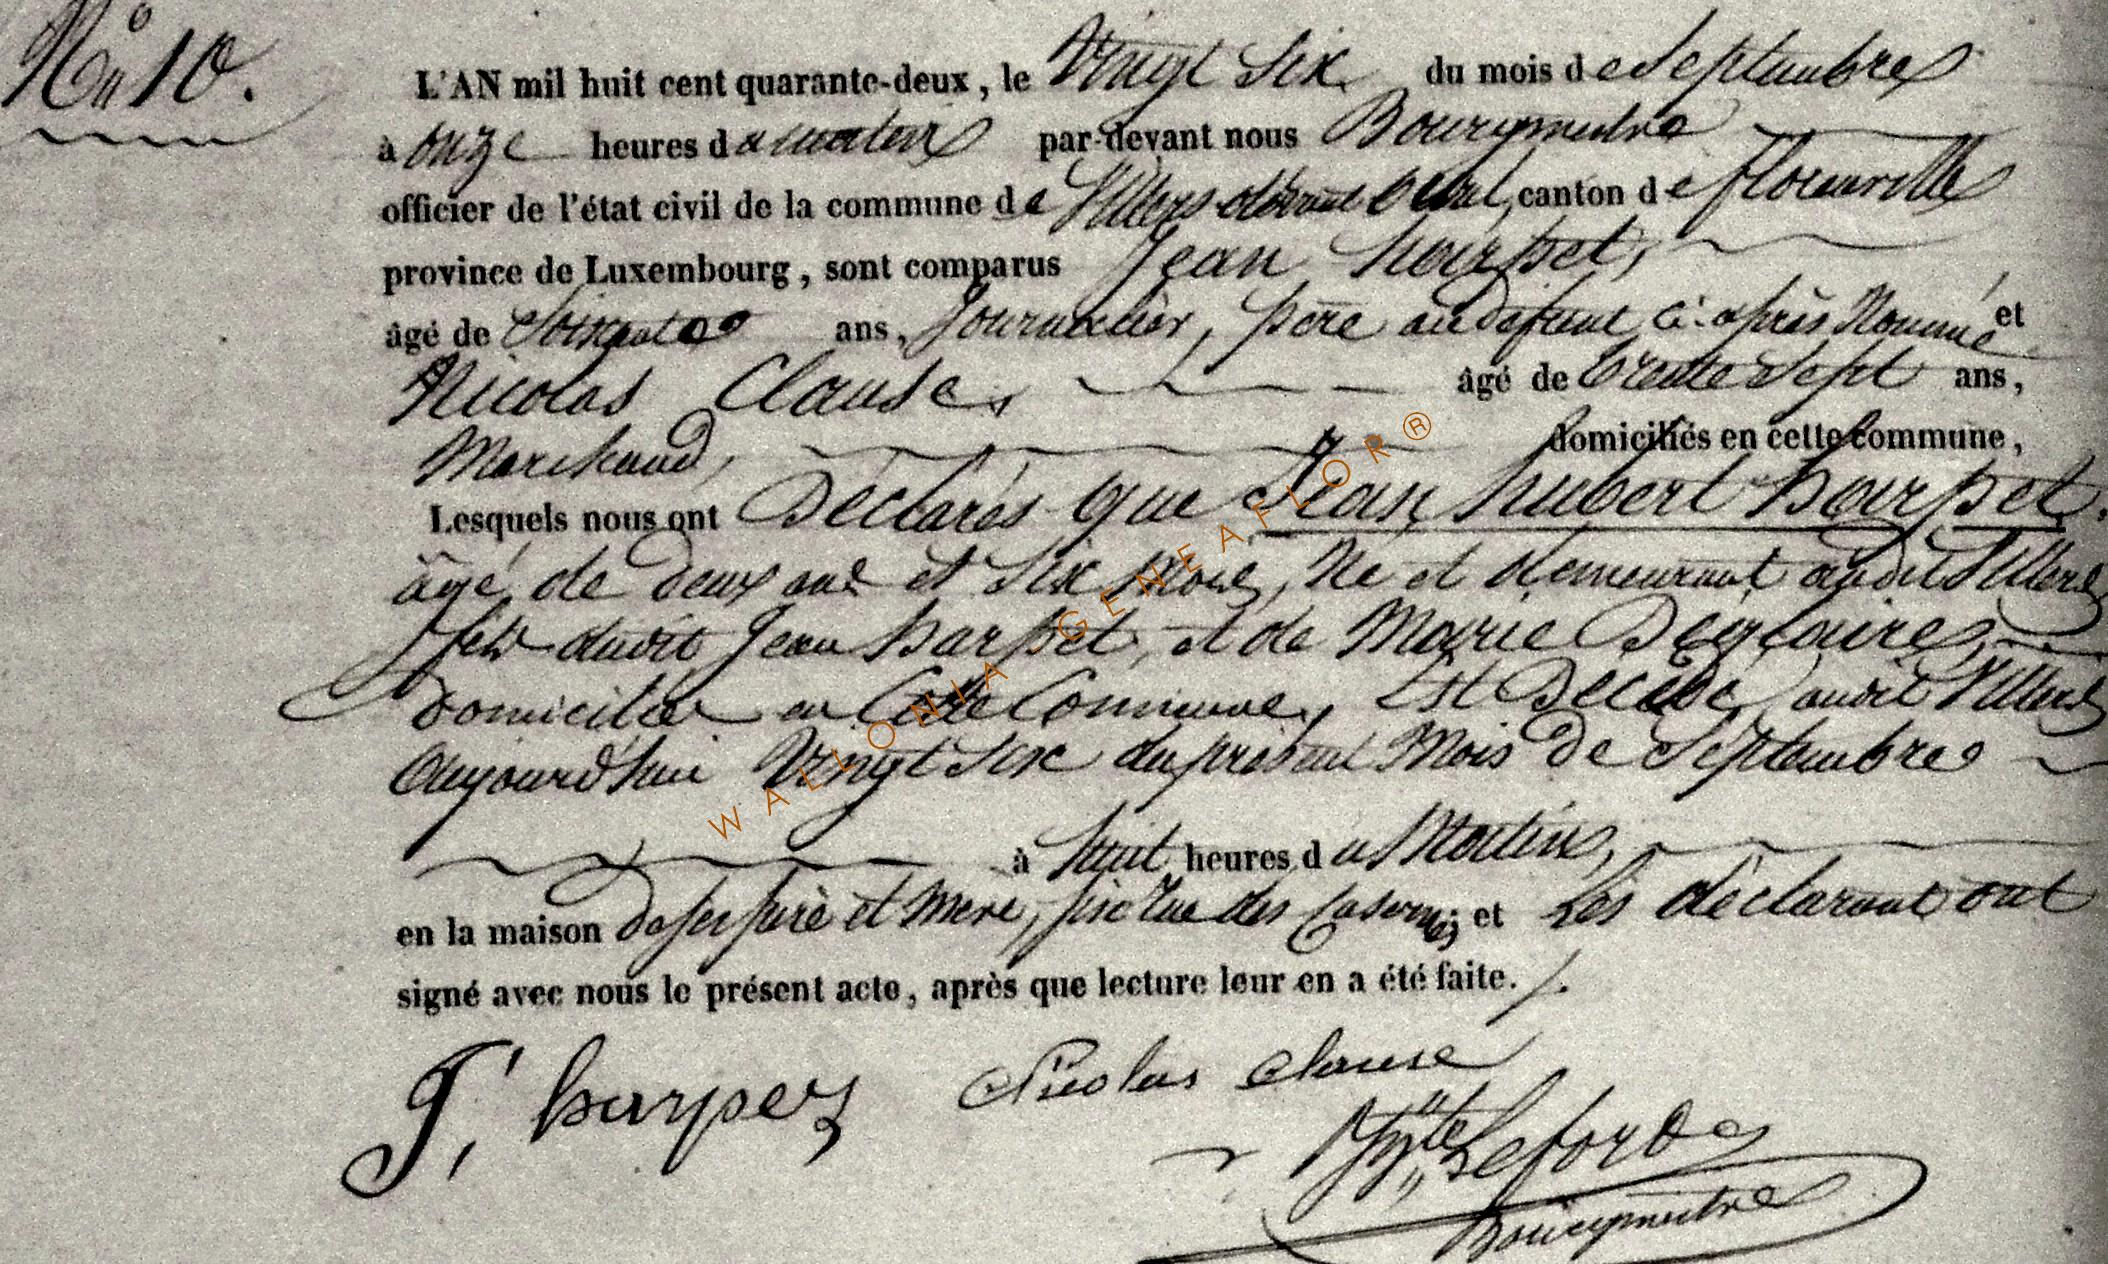 N.° 10.
L'AN mil huit cent quarante-deux, le Vingt Six du mois de Septembre
à onze heures du matin par-devant nous Bourgmestre
officier de l'état civil de la commune de Villers devant Orval, canton de florenville
province de Luxembourg, sont comparus Jean harpet,
âgé de Soixante ans, Journalier, père au défunt ci-après Nommé et
Nicolas Clause, âgé de trente Sept ans,
Marchand, domiciliés en cette commune,
Lesquels nous ont Déclarés que Jean hubert harpet,
âgé de deux ans et Six Mois, Né et demeurant audit Villers
fils dudit Jean harpet, et de Marie Deglaire,
domiciliés en Cette Commune, Est Décédé audit Villers
Aujourd'hui Vingt Six du présent Mois de Septembre
à huit heures du Matin,
en la maison de ses père et mère, sise rue des Casernes; et Les déclarant ont
signé avec nous le présent acte, après que lecture leur en a été faite.
J, harpez Nicolas Clause
hyte Leforbe
Bourgmestre
WALLONIA GENEAFLOR®